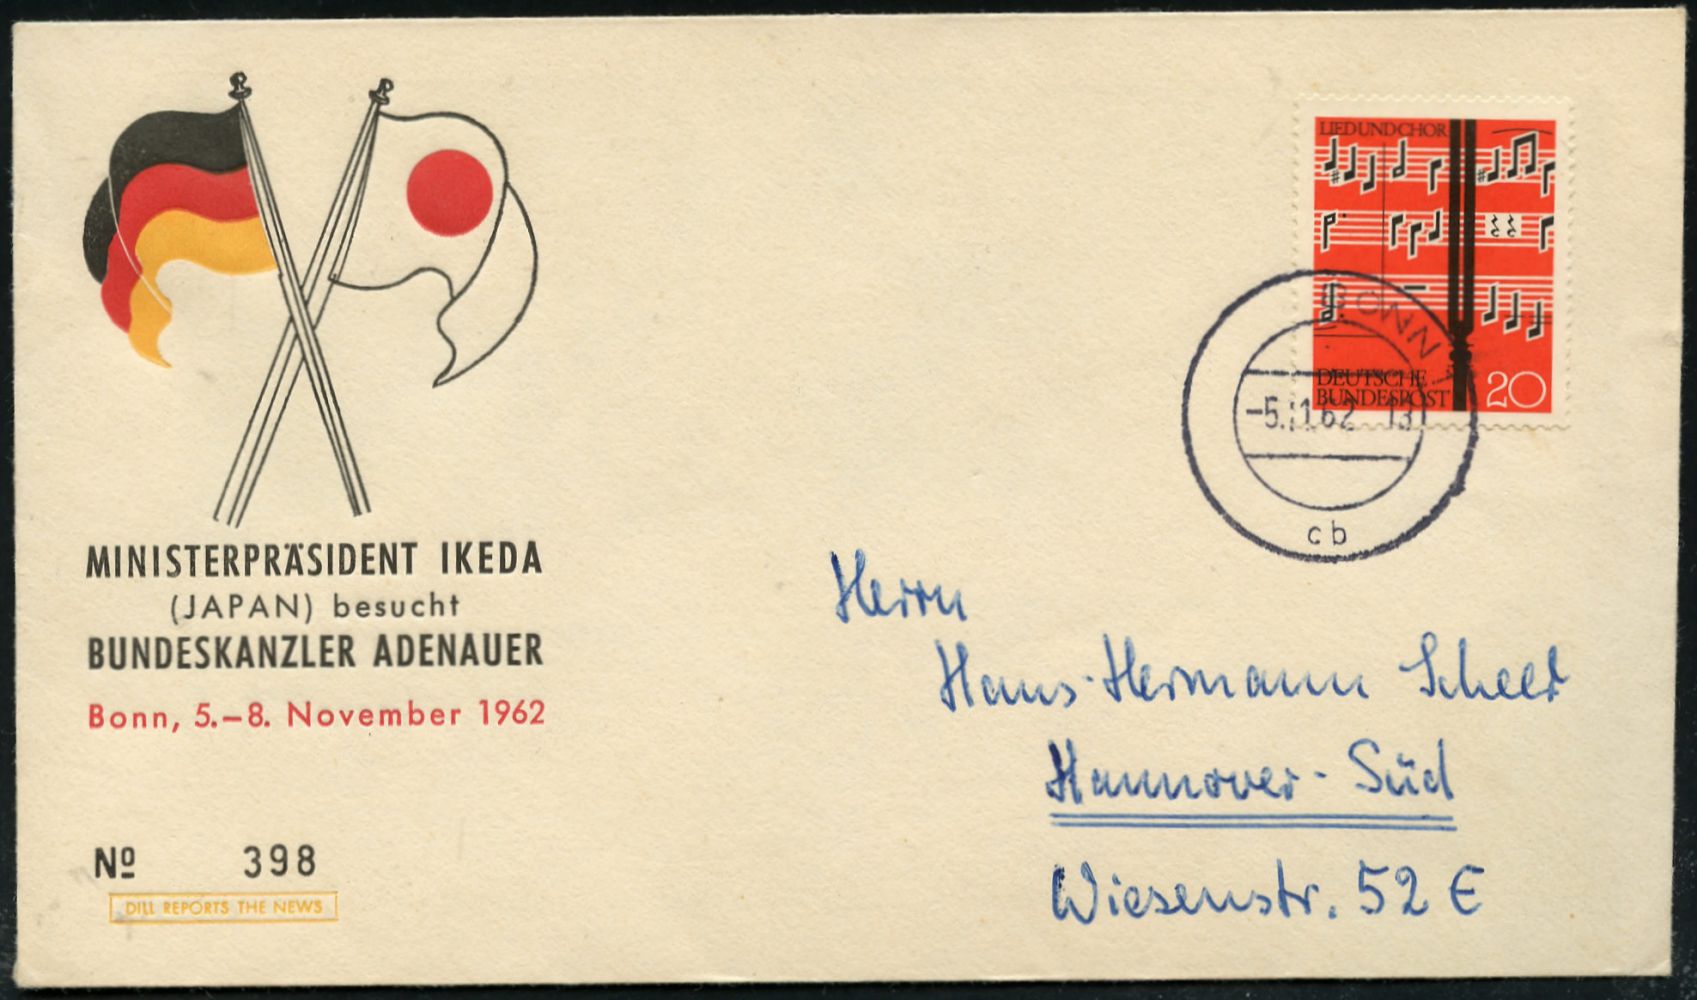 MINISTERPRÄSIDENT IKEDA
(JAPAN) besucht
BUNDESKANZLER ADENAUER
Bonn, 5.–8. November 1962
Nº 398
DILL REPORTS THE NEWS
LIED UND CHOR
DEUTSCHE
BUNDESPOST
20
BONN
-5.11.62 13
cb
Herrn
Hans-Hermann Scheer
Hannover-Süd
Wiesenstr. 52 E